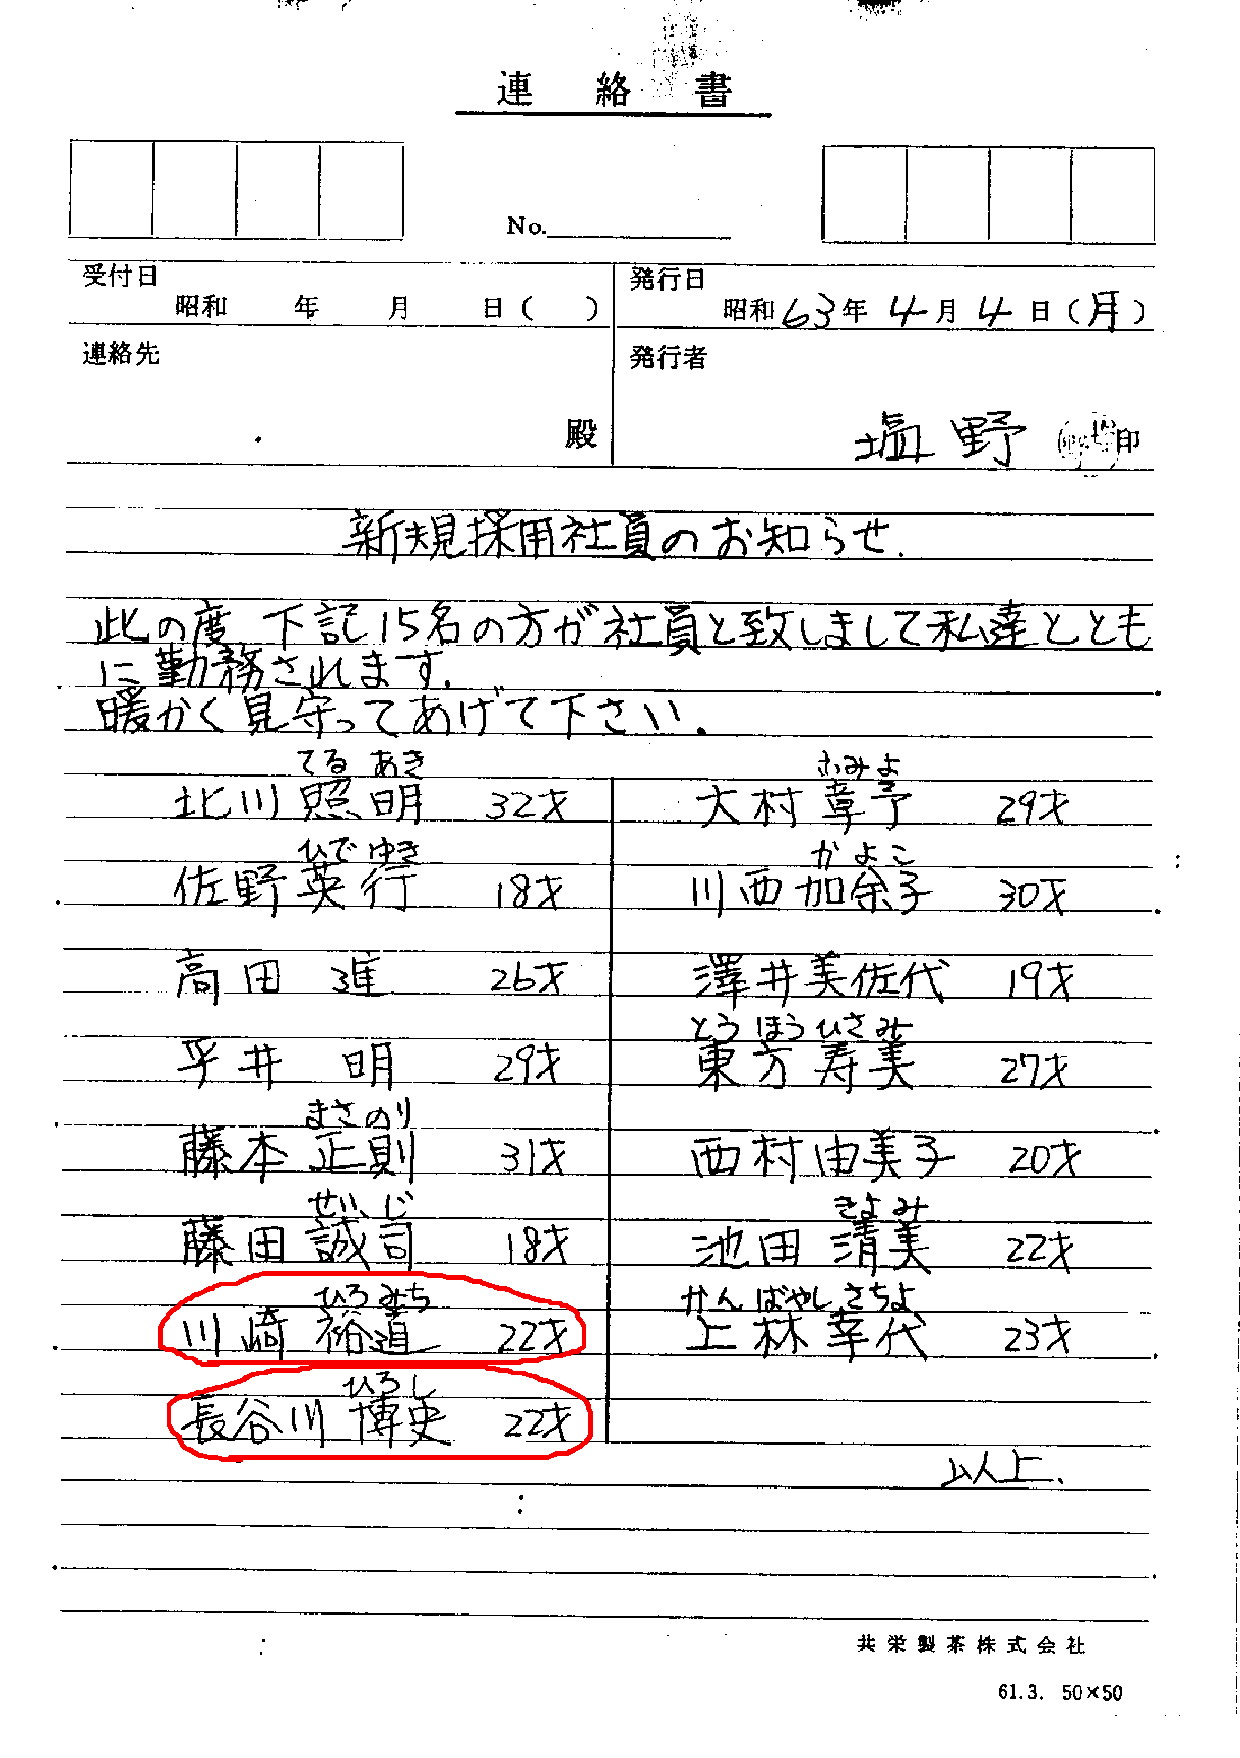 連絡書
No.
受付日
昭和 年 月 日( )
発行日
昭和63年4月4日(月)
連絡先
殿
発行者
塩野 印
新規採用社員のお知らせ.
此の度、下記15名の方が社員と致しまして私達ととも
に勤務されます.
暖かく見守ってあげて下さい.
てるあき
北川照明 32才
ひでゆき
佐野英行 18才
高田 進 26才
平井 明 29才
まさのり
藤本正則 31才
せいじ
藤田誠司 18才
ひろみち
川崎裕道 22才
ひろし
長谷川博史 22才
ふみよ
大村章予 29才
かよこ
川西加余子 30才
澤井美佐代 19才
とうほうひさみ
東方寿美 27才
西村由美子 20才
きよみ
池田清美 22才
かんばやしさちよ
上林幸代 23才
以上.
共栄製茶株式会社
61.3. 50×50